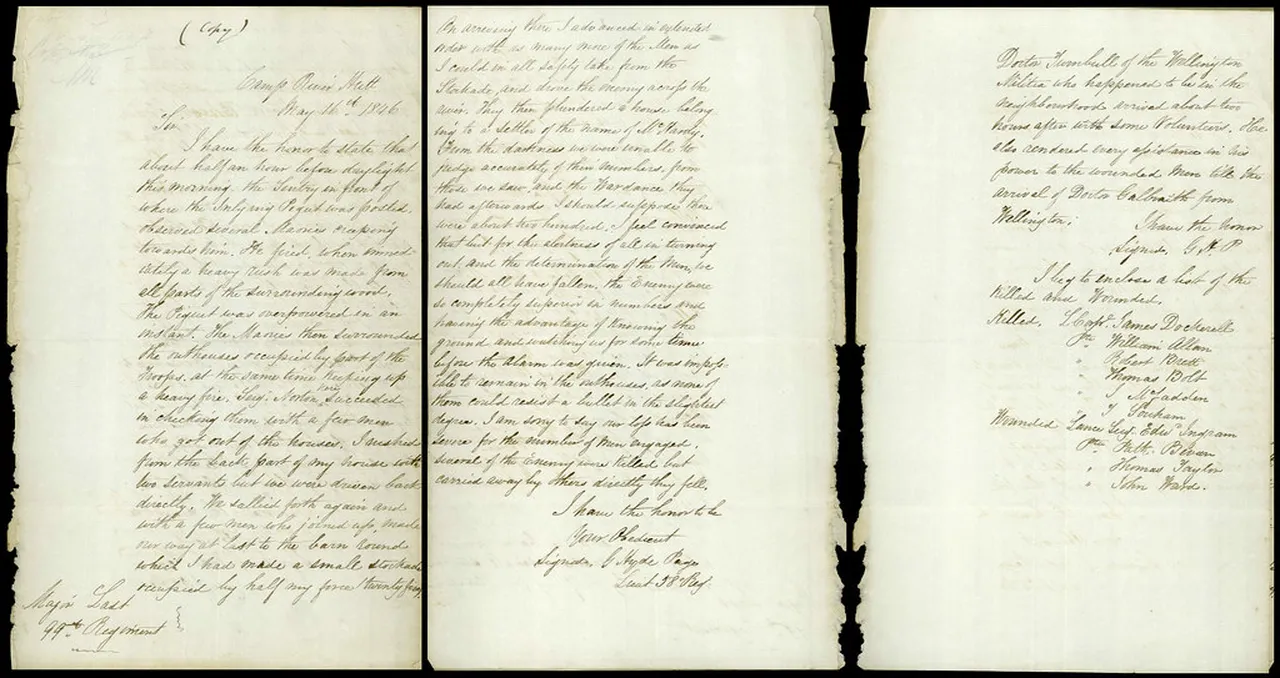 (Copy)
Camp River Hutt
May 16th 1846
Sir
I have the honor to state that
about half an hour before daylight
this morning. the Sentry in front of
where the Inlying Piquet was posted.
observed several Maories creeping
towards him. He fired, when immed-
iately a heavy rush was made from
all parts of the surrounding wood.
The Piquet was overpowered in an
instant. The Maories then surrounded
the outhouses occupied by part of the
Troops. at the same time keeping up
a heavy fire. Sergt. Norton, succeeded
in checking them with a few men
who got out of the houses. I rushed
from the back part of my house with
two servants but we were driven back
directly. We sallied forth again and
with a few men who joined us, made
our way at last to the barn round
which I had made a small stockade
occupied by half my force (twenty five)
Major Last
99th Regiment
On arriving there I advanced in extended
order with as many more of the Men as
I could in all safety take from the
Stockade, and drove the enemy across the
river. They then plundered a house belong-
ing to a Settler of the name of McHardy.
From the darkness we were unable to
judge accurately of their numbers, from
those we saw, and the Wardance they
had afterwards. I should suppose there
were about two hundred. I feel convinced
that but for the alertness of all in turning
out, and the determination of the Men, we
should all have fallen, the Enemy were
so completely superior in numbers and
having the advantage of knowing the
ground and watching us for some time
before the Alarm was given. It was imposs-
ible to remain in the outhouses, as none of
them could resist a bullet in the slightest
degree. I am sorry to say our loss has been
severe for the number of Men engaged.
several of the Enemy were Killed but
carried away by others directly they fell.
I have the honor to be
Your Obedient
Signed, G Hyde Page
Lieut 58 Reg.
Doctor Turnbull of the Wellington
Militia who happened to be in the
neighbourhood arrived about two
hours after with some Volunteers. He
also rendered every assistance in his
power to the wounded Men till the
arrival of Doctor Galbraith from
Wellington;
I have the honor
Signed, G. H. P
I beg to enclose a list of the
Killed and Wounded.
Killed, L Corpl. James Dockerell
Pte William Allan
" Robert Brett
" Thomas Bolt
" J McFadden
" J Sonham
Wounded Lance Sergt. Edwd Ingram
Pte Patk. Bevan
" Thomas Taylor
" John Ward.